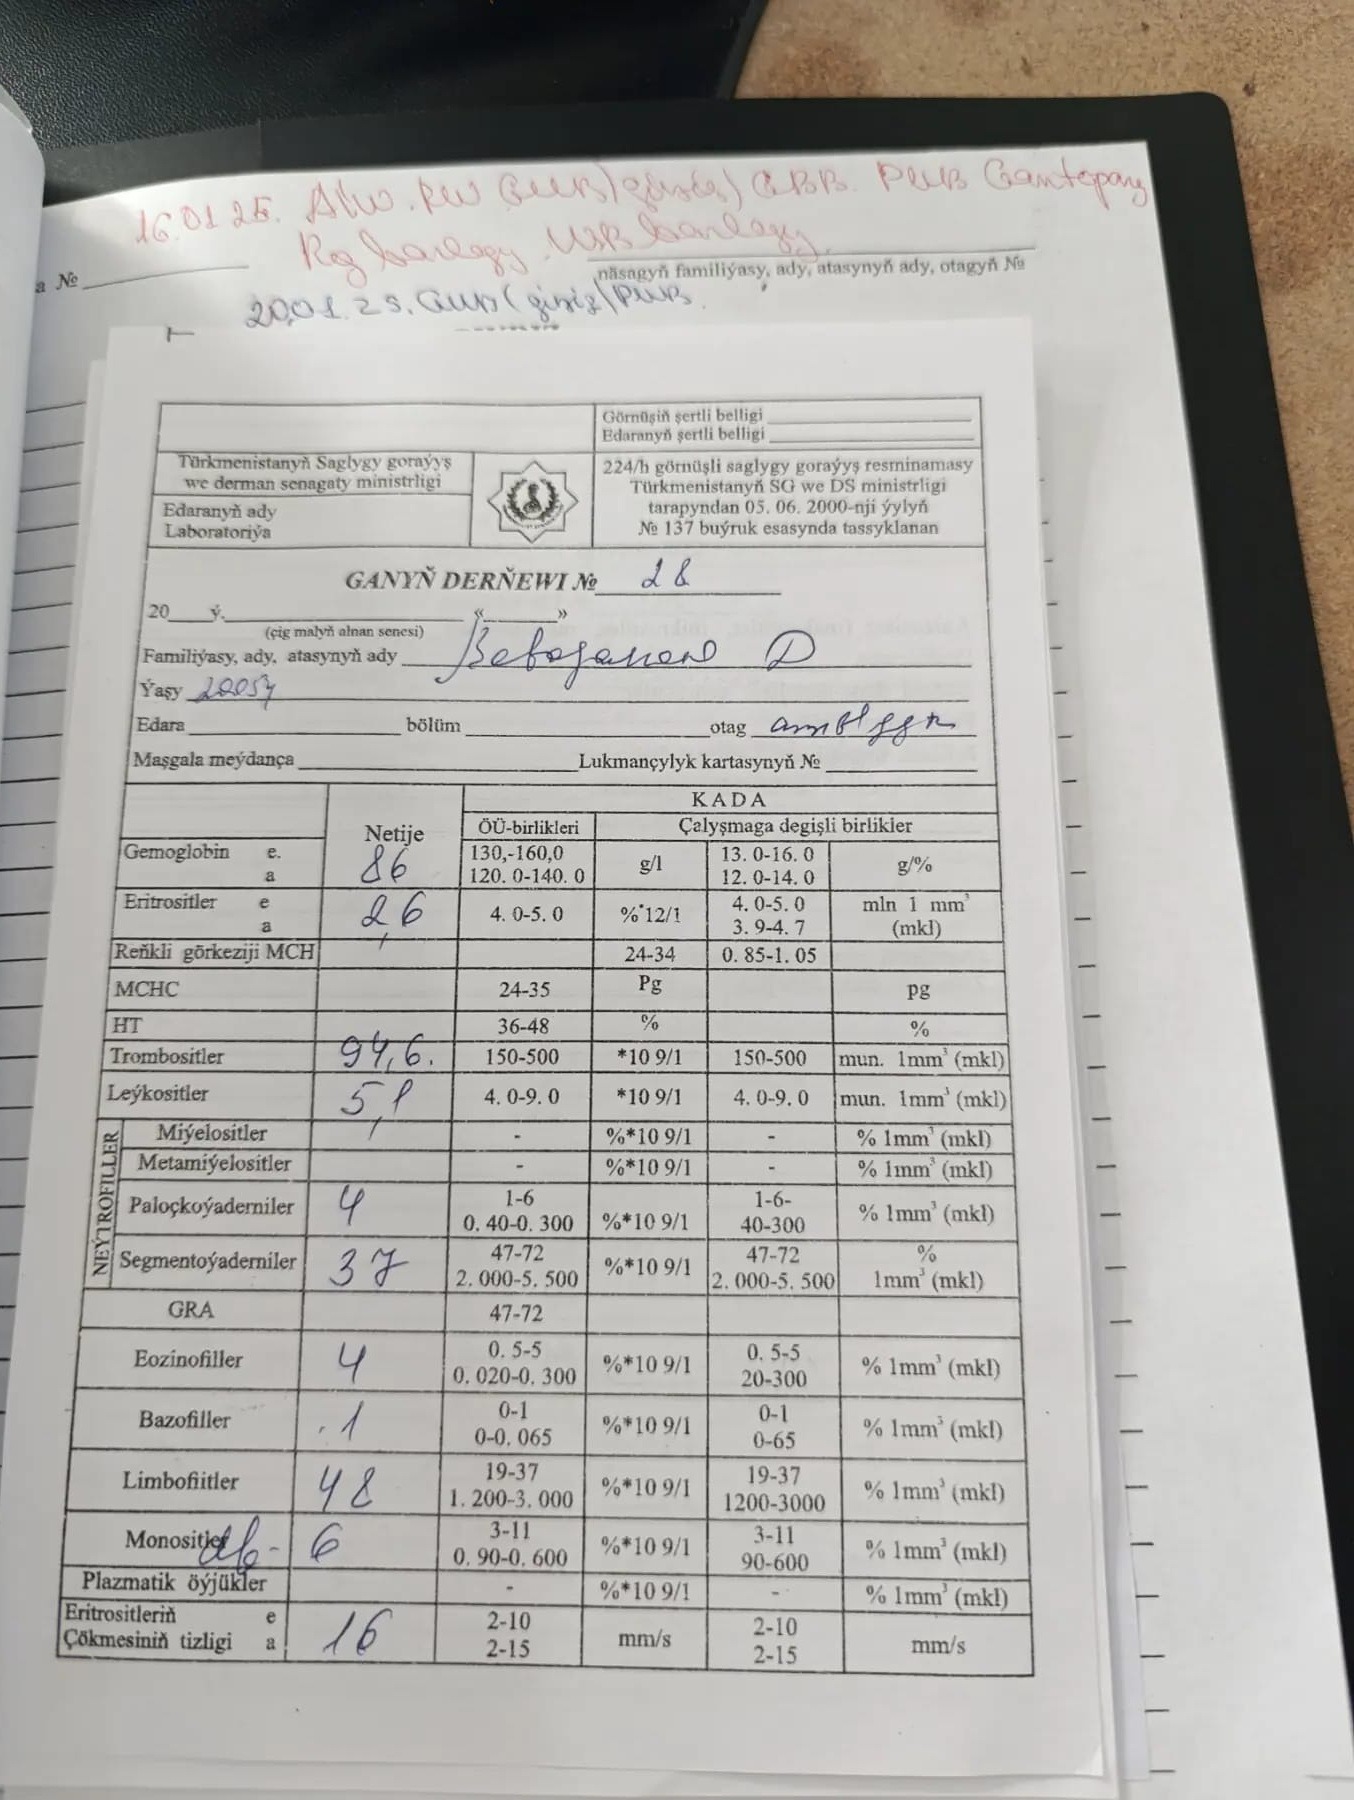 16.01.25. GBB. Gantopary
barlagy. barlagy
a №
näsagyň familiýasy, ady, atasynyň ady, otagyň №
20.01.25. (girig)
Görnüşiň şertli belligi
Edaranyň şertli belligi
Türkmenistanyň Saglygy goraýyş
we derman senagaty ministrligi
Edaranyň ady
Laboratoriýa
224/h görnüşli saglygy goraýyş resminamasy
Türkmenistanyň SG we DS ministrligi
tarapyndan 05. 06. 2000-nji ýylyň
№ 137 buýruk esasynda tassyklanan
GANYŇ DERŇEWI № 28
20 ý. « »
(çig malyň alnan senesi)
Familiýasy, ady, atasynyň ady D
Ýaşy 2005ý
Edara bölüm otag
Maşgala meýdança Lukmançylyk kartasynyň №
Netije KADA
ÖÜ-birlikleri Çalyşmaga degişli birlikler
Gemoglobin e. a 86 130,-160,0 120. 0-140. 0 g/l 13. 0-16. 0 12. 0-14. 0 g/%
Eritrositler e a 2,6 4. 0-5. 0 %*12/1 4. 0-5. 0 3. 9-4. 7 mln 1 mm³ (mkl)
Reňkli görkeziji MCH 24-34 0. 85-1. 05
MCHC 24-35 Pg pg
HT 36-48 % %
Trombositler 94,6. 150-500 *10 9/1 150-500 mun. 1mm³ (mkl)
Leýkositler 5,1 4. 0-9. 0 *10 9/1 4. 0-9. 0 mun. 1mm³ (mkl)
NEÝTROFILLER
Miýelositler - %*10 9/1 - % 1mm³ (mkl)
Metamiýelositler - %*10 9/1 - % 1mm³ (mkl)
Paloçkoýaderniler 4 1-6 0. 40-0. 300 %*10 9/1 1-6- 40-300 % 1mm³ (mkl)
Segmentoýaderniler 37 47-72 2. 000-5. 500 %*10 9/1 47-72 2. 000-5. 500 % 1mm³ (mkl)
GRA 47-72
Eozinofiller 4 0. 5-5 0. 020-0. 300 %*10 9/1 0. 5-5 20-300 % 1mm³ (mkl)
Bazofiller 1 0-1 0-0. 065 %*10 9/1 0-1 0-65 % 1mm³ (mkl)
Limbofiitler 48 19-37 1. 200-3. 000 %*10 9/1 19-37 1200-3000 % 1mm³ (mkl)
Monositler 6 3-11 0. 90-0. 600 %*10 9/1 3-11 90-600 % 1mm³ (mkl)
Plazmatik öýjükler - %*10 9/1 - % 1mm³ (mkl)
Eritrositleriň Çökmesiniň tizligi e a 16 2-10 2-15 mm/s 2-10 2-15 mm/s